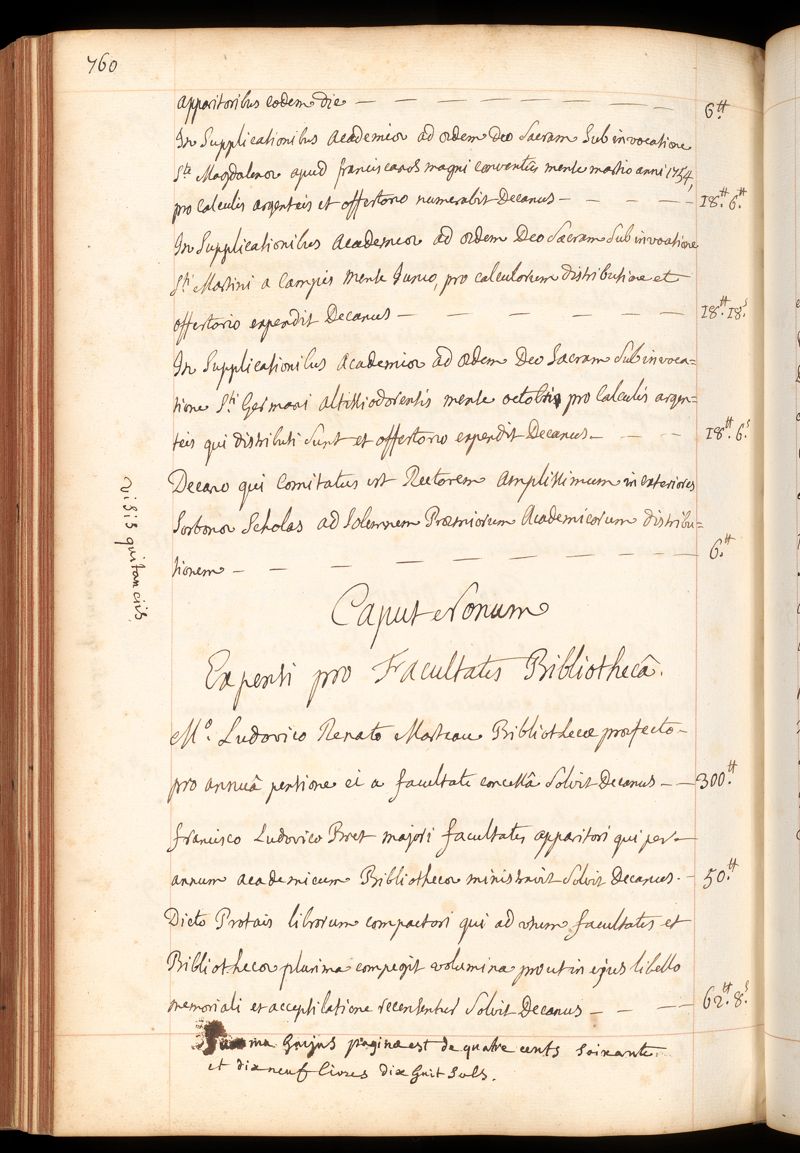 760
apparitoribus eodem die — — — — — — — — 6.tt
In Supplicationibus Academiæ ad ædem Deo Sacram Sub invocatione
Stæ Magdalenæ apud franciscanos magni conventus mense martio anni 1754,
pro calculis argenteis et offertorio numerabit Decanus — — — — — 18.tt 6.tt
In Supplicationibus Academiæ ad ædem Deo Sacram Sub invocatione
Sti Martini a Campis Mense Junio, pro calculorum distributione et
offertorio expendit Decanus — — — — — — 18.tt 18.s
In Supplicationibus Academiæ ad ædem Deo Sacram Sub invoca=
tione Sti Germani altissiodorensis mense octobris pro Calculis argen=
teis qui distributi Sunt et offertorio expendit Decanus — — — 18.tt 6.s
Decano qui Comitatus est Rectorem amplissimum in exteriores
Sorbonæ Scholas ad Solemnem Præmiorum Academicorum distribu=
tionem — — — — — — — — — — 6.tt
visis quitanciis
Caput Nonum
Expensi pro Facultatis Bibliothecâ.
Mo. Ludovico Renato Marteau Bibliothecæ præfecto —
pro annuâ pensione ei a facultate concessâ Solvit Decanus — — 300.tt
francisco Ludovico Bret majori facultatis apparitori qui per —
annum academicum Bibliothecæ ministravit Solvit Decanus — 50.tt
Dicto Protais librorum compactori qui ad usum facultatis et
Bibliothecæ plurima compegit volumina prout in ejus libello
memoriali et acceptilatione recensentur Solvit Decanus — — — — 62.tt 8.s
Summa hujus paginæ est de quatre cents Soixante
et dix neuf livres dix huit Sols.